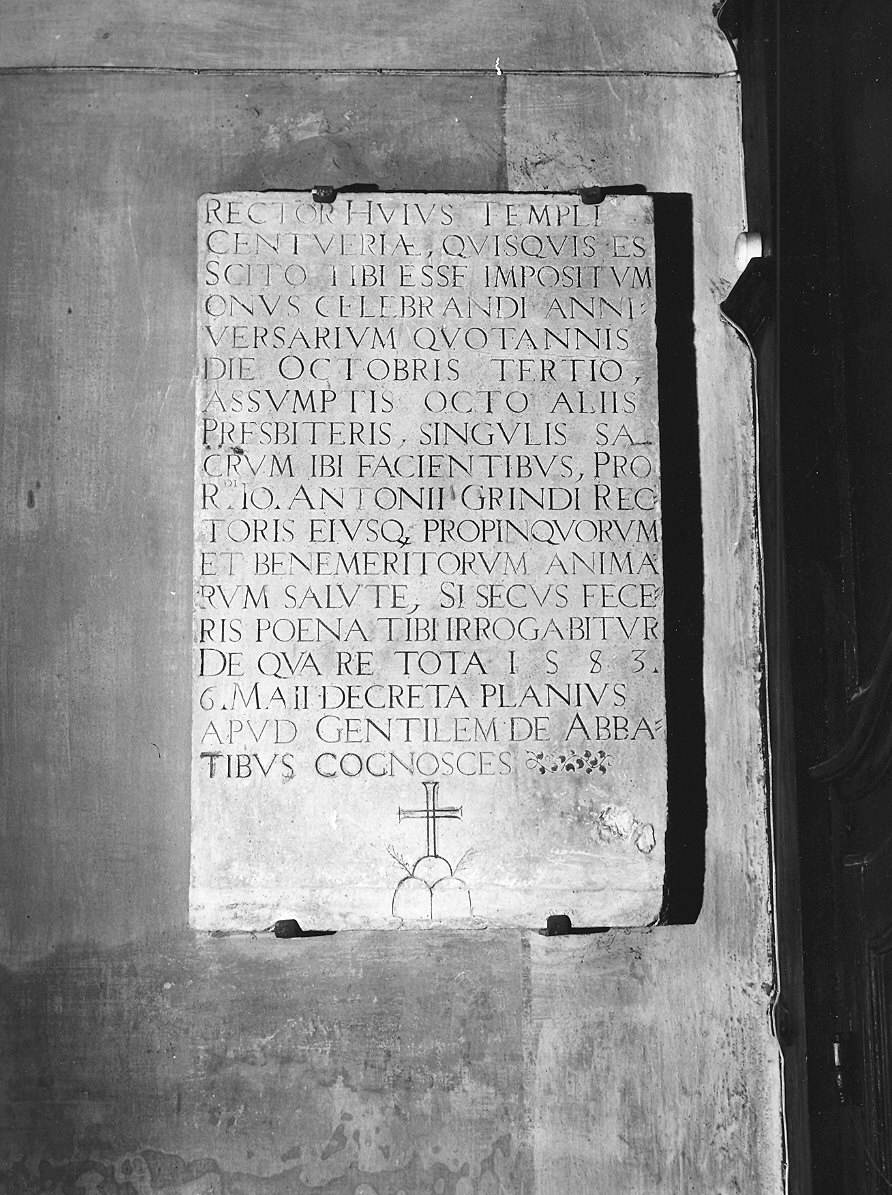 RECTOR HVIVS TEMPLI
CENTVERIÆ, QVISQVIS ES
SCITO TIBI ESSE IMPOSITVM
ONVS CELEBRANDI ANNI:
VERSARIVM QVOTANNIS
DIE OCTOBRIS TERTIO,
ASSVMPTIS OCTO ALIIS
PRESBITERIS, SINGVLIS SA=
CRVM IBI FACIENTIBVS, PRO
R.DI IO. ANTONII GRINDI REC
TORIS EIVSQ. PROPINQVORVM
ET BENEMERITORVM ANIMA
RVM SALVTE, SI SECVS FECE=
RIS POENA TIBI IRROGABITVR
DE QVA RE TOTA 1583.
6. MAII DECRETA PLANIVS
APVD GENTILEM DE ABBA=
TIBVS COGNOSCES